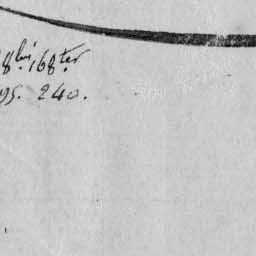 8bis, 168ter
95. 240.